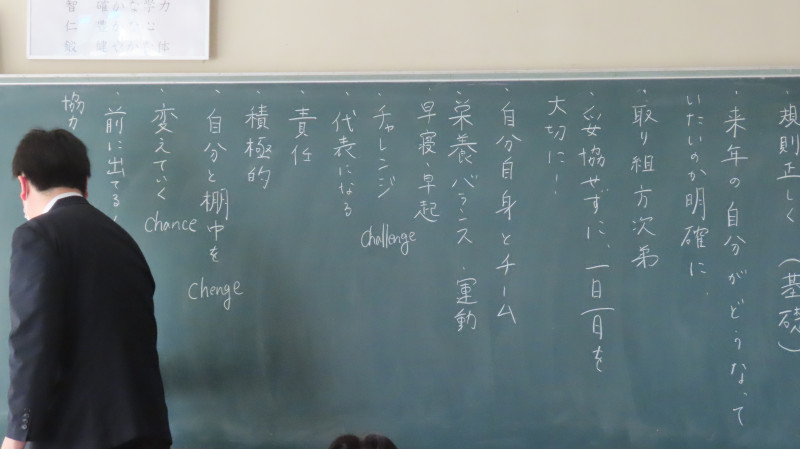 智 確かな学力
仁
規則正しく(基礎)
・来年の自分がどうなって
いたいのか明確に.
・取り組方次第
・妥協せずに、一日一日を
大切に!
・自分自身とチーム
・栄養バランス・運動
・早寝・早起
・チャレンジ
challenge
・代表になる
・責任
・積極的
・自分と棚中を
chenge
・変えていく
chance
・前に出てる
協力